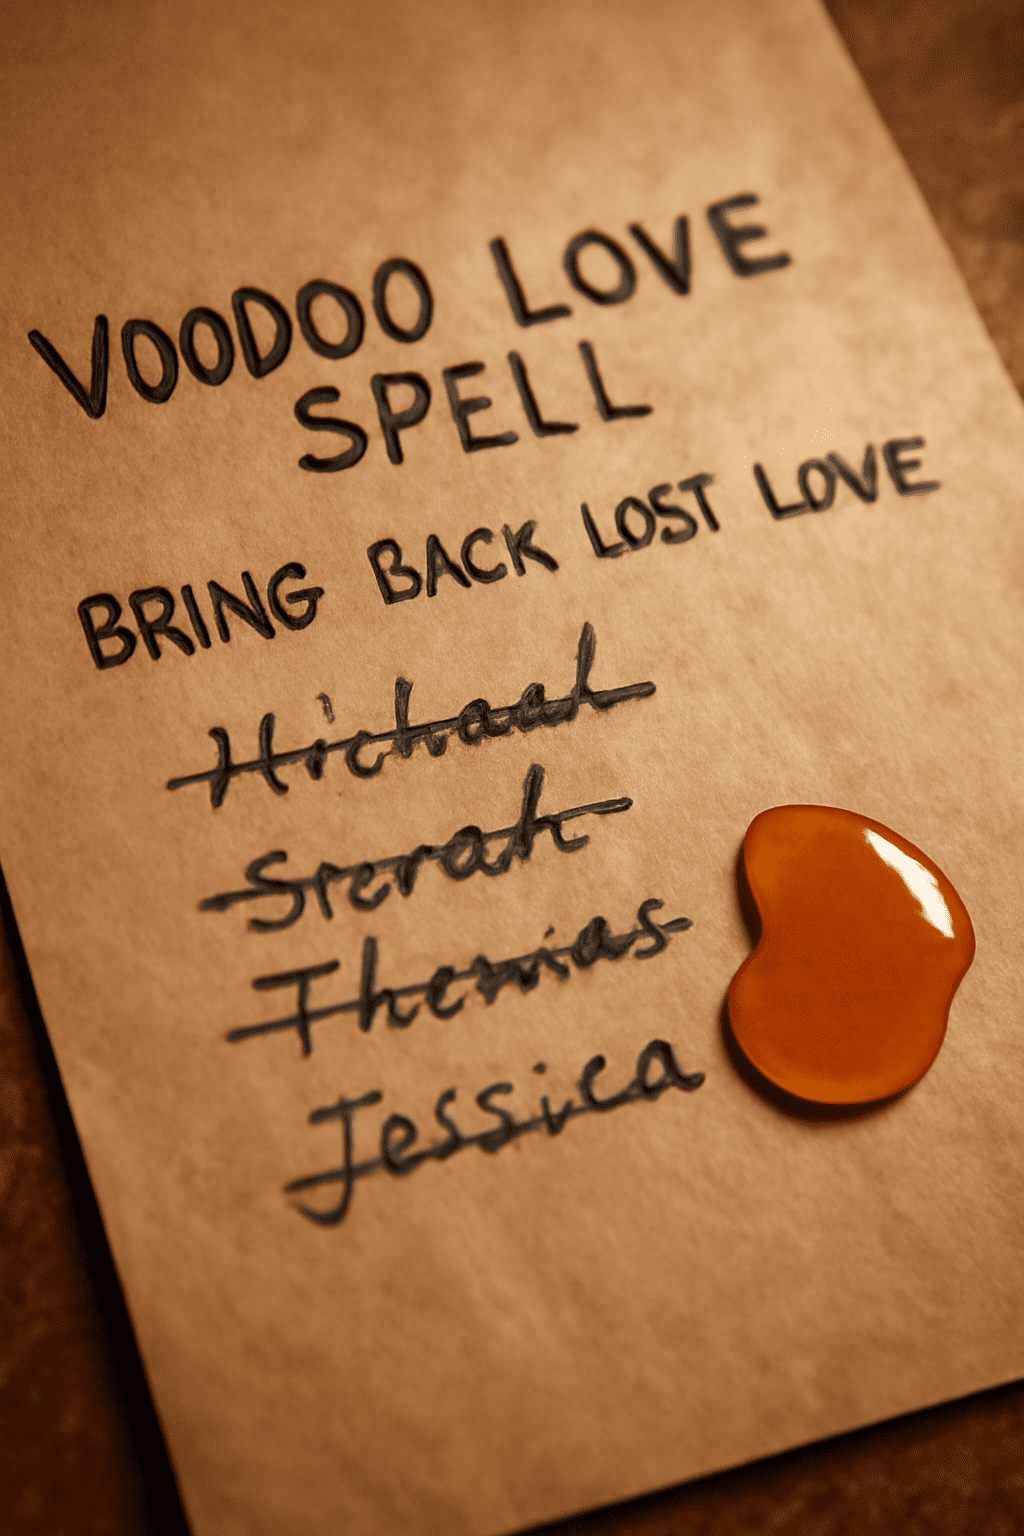 VOODOO LOVE
SPELL
BRING BACK LOST LOVE
Hichaal
Srerah
Themias
Jessica